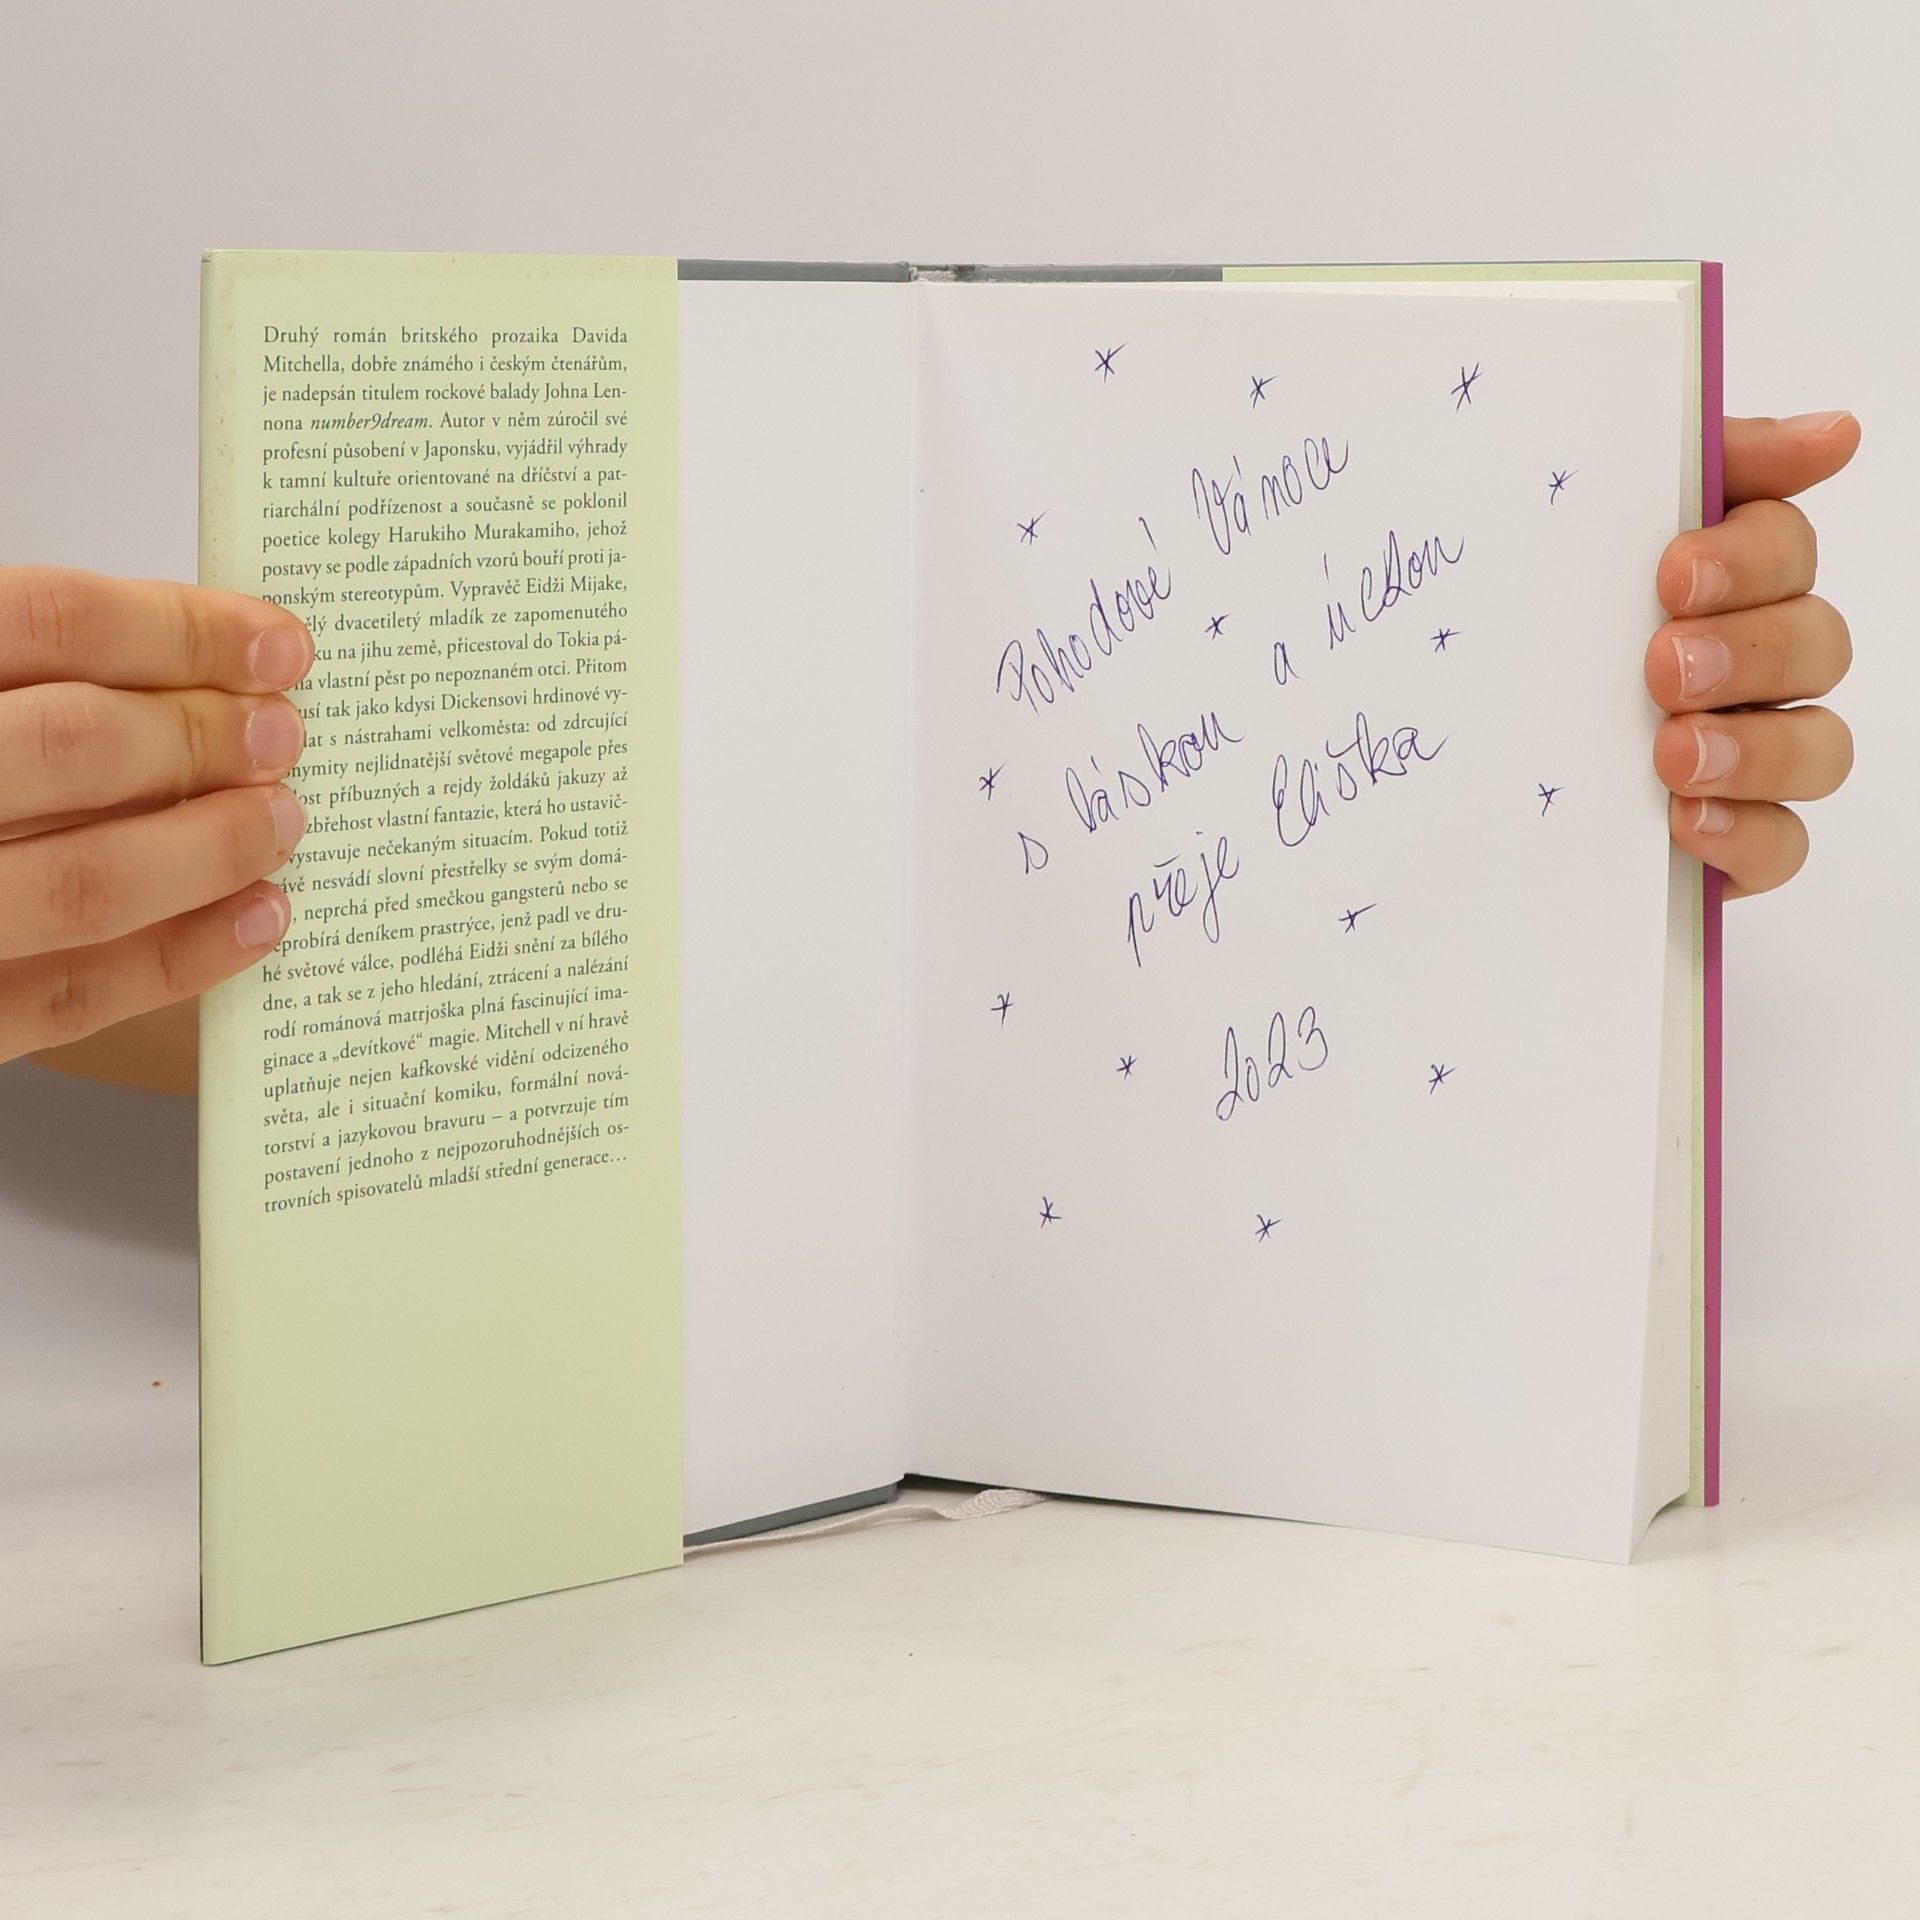 Druhý román britského prozaika Davida
Mitchella, dobře známého i českým čtenářům,
je nadepsán titulem rockové balady Johna Len-
nona number9dream. Autor v něm zúročil své
profesní působení v Japonsku, vyjádřil výhrady
k tamní kultuře orientované na dříčství a pat-
riarchální podřízenost a současně se poklonil
poetice kolegy Harukiho Murakamiho, jehož
postavy se podle západních vzorů bouří proti ja-
ponským stereotypům. Vypravěč Eidži Mijake,
ělý dvacetiletý mladík ze zapomenutého
ku na jihu země, přicestoval do Tokia pá-
na vlastní pěst po nepoznaném otci. Přitom
usí tak jako kdysi Dickensovi hrdinové vy-
lat s nástrahami velkoměsta: od zdrcující
nymity nejlidnatější světové megapole přes
ost příbuzných a rejdy žoldáků jakuzy až
zbřehost vlastní fantazie, která ho ustavič-
vystavuje nečekaným situacím. Pokud totiž
ávě nesvádí slovní přestřelky se svým domá-
, neprchá před smečkou gangsterů nebo se
eprobírá deníkem prastrýce, jenž padl ve dru-
hé světové válce, podléhá Eidži snění za bílého
dne, a tak se z jeho hledání, ztrácení a nalézání
rodí románová matrjoška plná fascinující ima-
ginace a „devítkové“ magie. Mitchell v ní hravě
uplatňuje nejen kafkovské vidění odcizeného
světa, ale i situační komiku, formální nová-
torství a jazykovou bravuru – a potvrzuje tím
postavení jednoho z nejpozoruhodnějších os-
trovních spisovatelů mladší střední generace…
Pohodové Vánoce
s láskou a úctou
přeje Eliška
2023